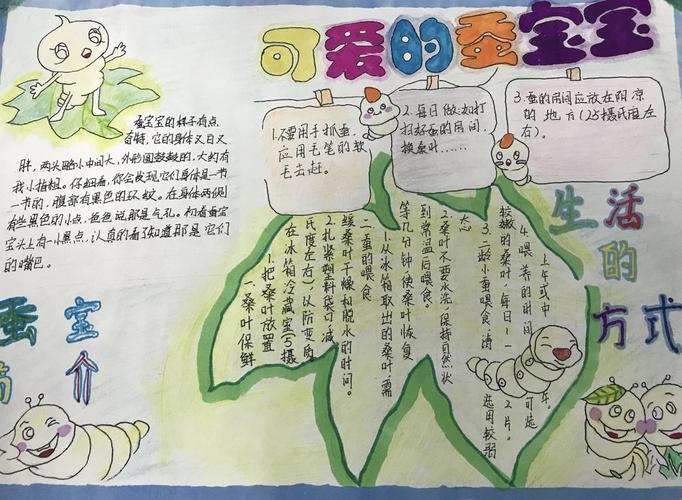 可爱的蚕宝宝
蚕宝宝的样子有点
奇特，它的身体又白又
胖，两头略小中间大，外形圆鼓鼓的，大约有
我小指粗。仔细看，你会发现它们身体是一节
一节的，腹部有黑色的环蚊。在身体两侧
有些黑色的小点，爸爸说那是气孔。初看蚕宝
宝头上有一小黑点，认真的看了知道那是它们
的嘴巴。
蚕宝
简介
1.不要用手抓蚕，
应用毛笔的软
毛去赶。
2.每日做:如打
扫好蚕的房间，
换桑叶……
3.蚕的房间应放在阴凉
的地方(25摄氏度左
右)。
生活
的
方式
一、桑叶保鲜
1.把桑叶放置
在冰箱冷藏室(5摄
氏度左右)，以防变质
2.扎紧塑料袋可减
缓桑叶干燥和脱水的时间。
二、蚕的喂食
1.从冰箱取出的桑叶，需
等几分钟，使桑叶恢复
到常温后喂食。
2.桑叶不要水洗，保持自然状
态
3.二龄小蚕喂食：请选用较弱
较嫩的桑叶，每日1一2片。
4.喂养的时间可选
上午或中午。